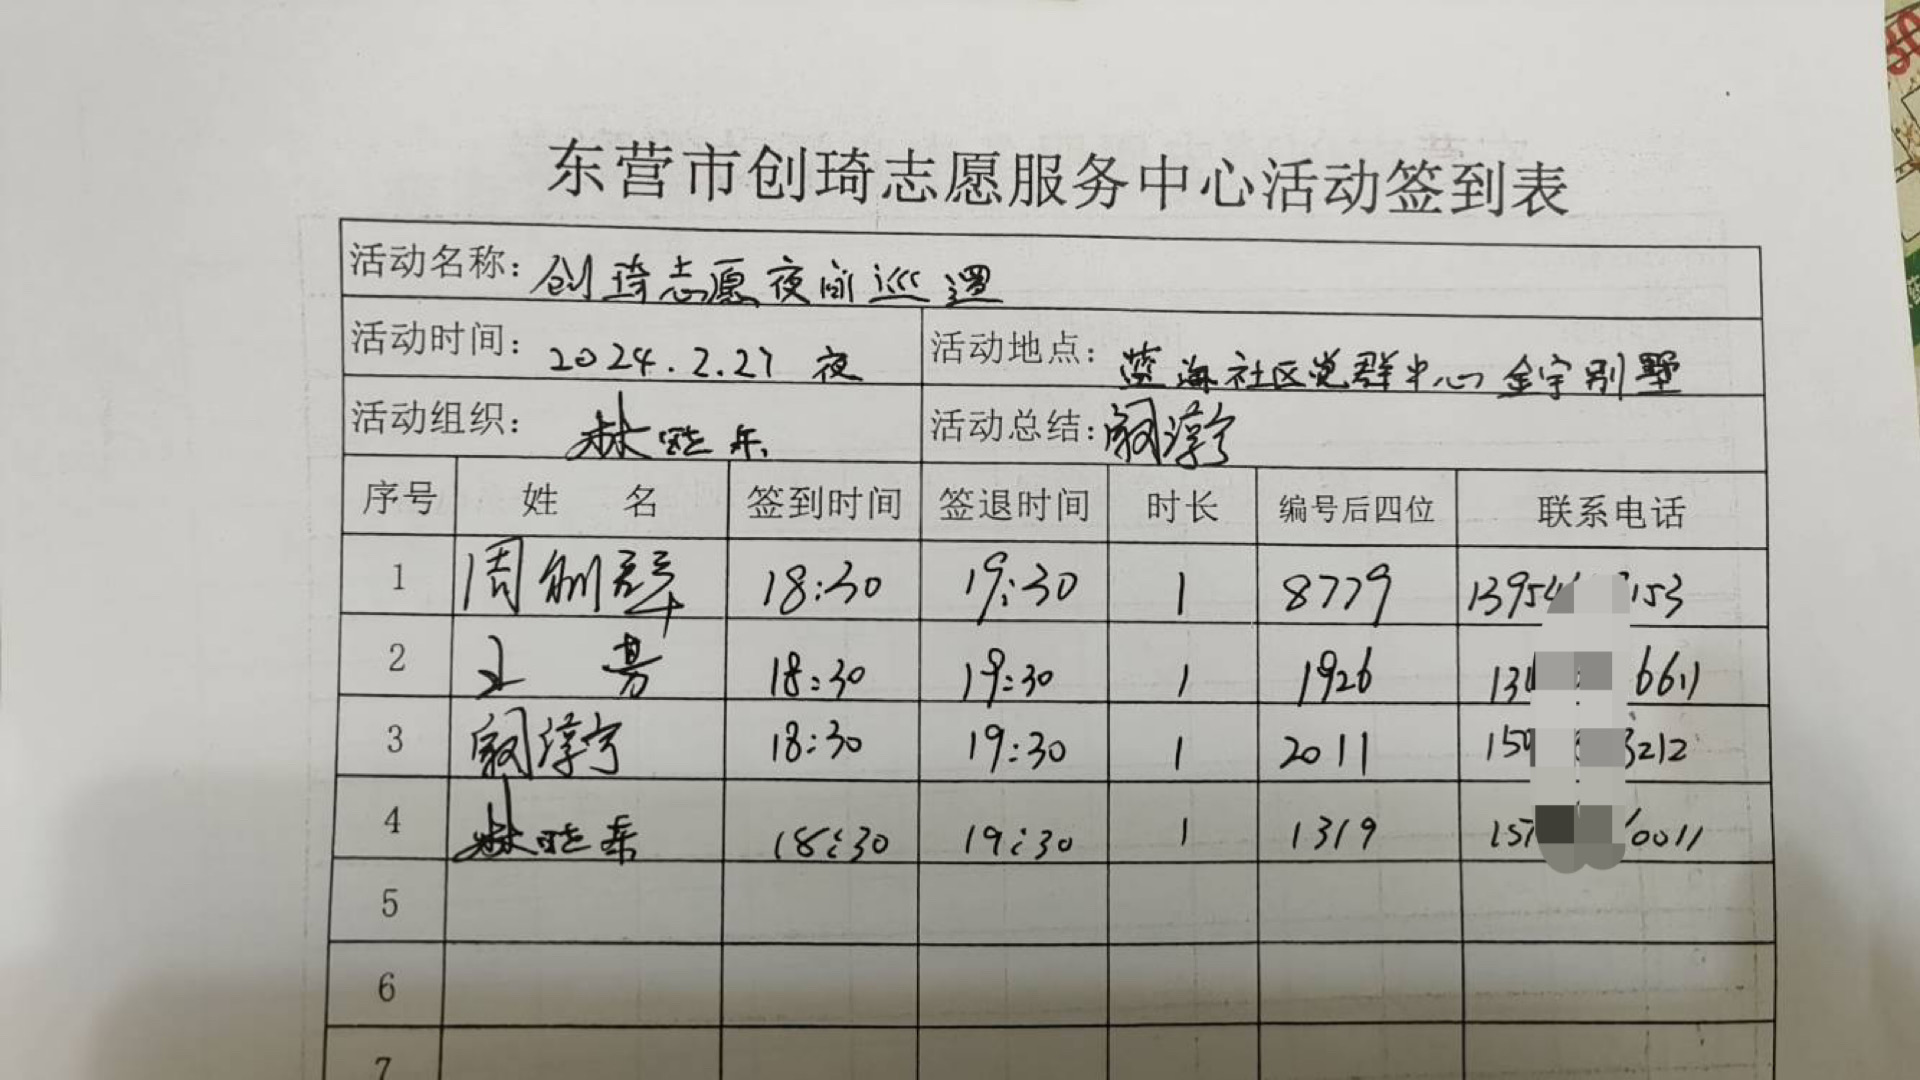 东营市创琦志愿服务中心活动签到表
活动名称：创琦志愿夜间巡逻
活动时间：2024.2.27 夜 活动地点：蓝海社区党群中心 金宇别墅
活动组织：林晓东 活动总结：阚淳宁
序号 姓 名 签到时间 签退时间 时长 编号后四位 联系电话
1 周 18:30 19:30 1 8779 1395 153
2 王 芳 18:30 19:30 1 1926 13 6611
3 阚淳宁 18:30 19:30 1 2011 150 3212
4 林晓东 18:30 19:30 1 1319 15 0011
5
6
7